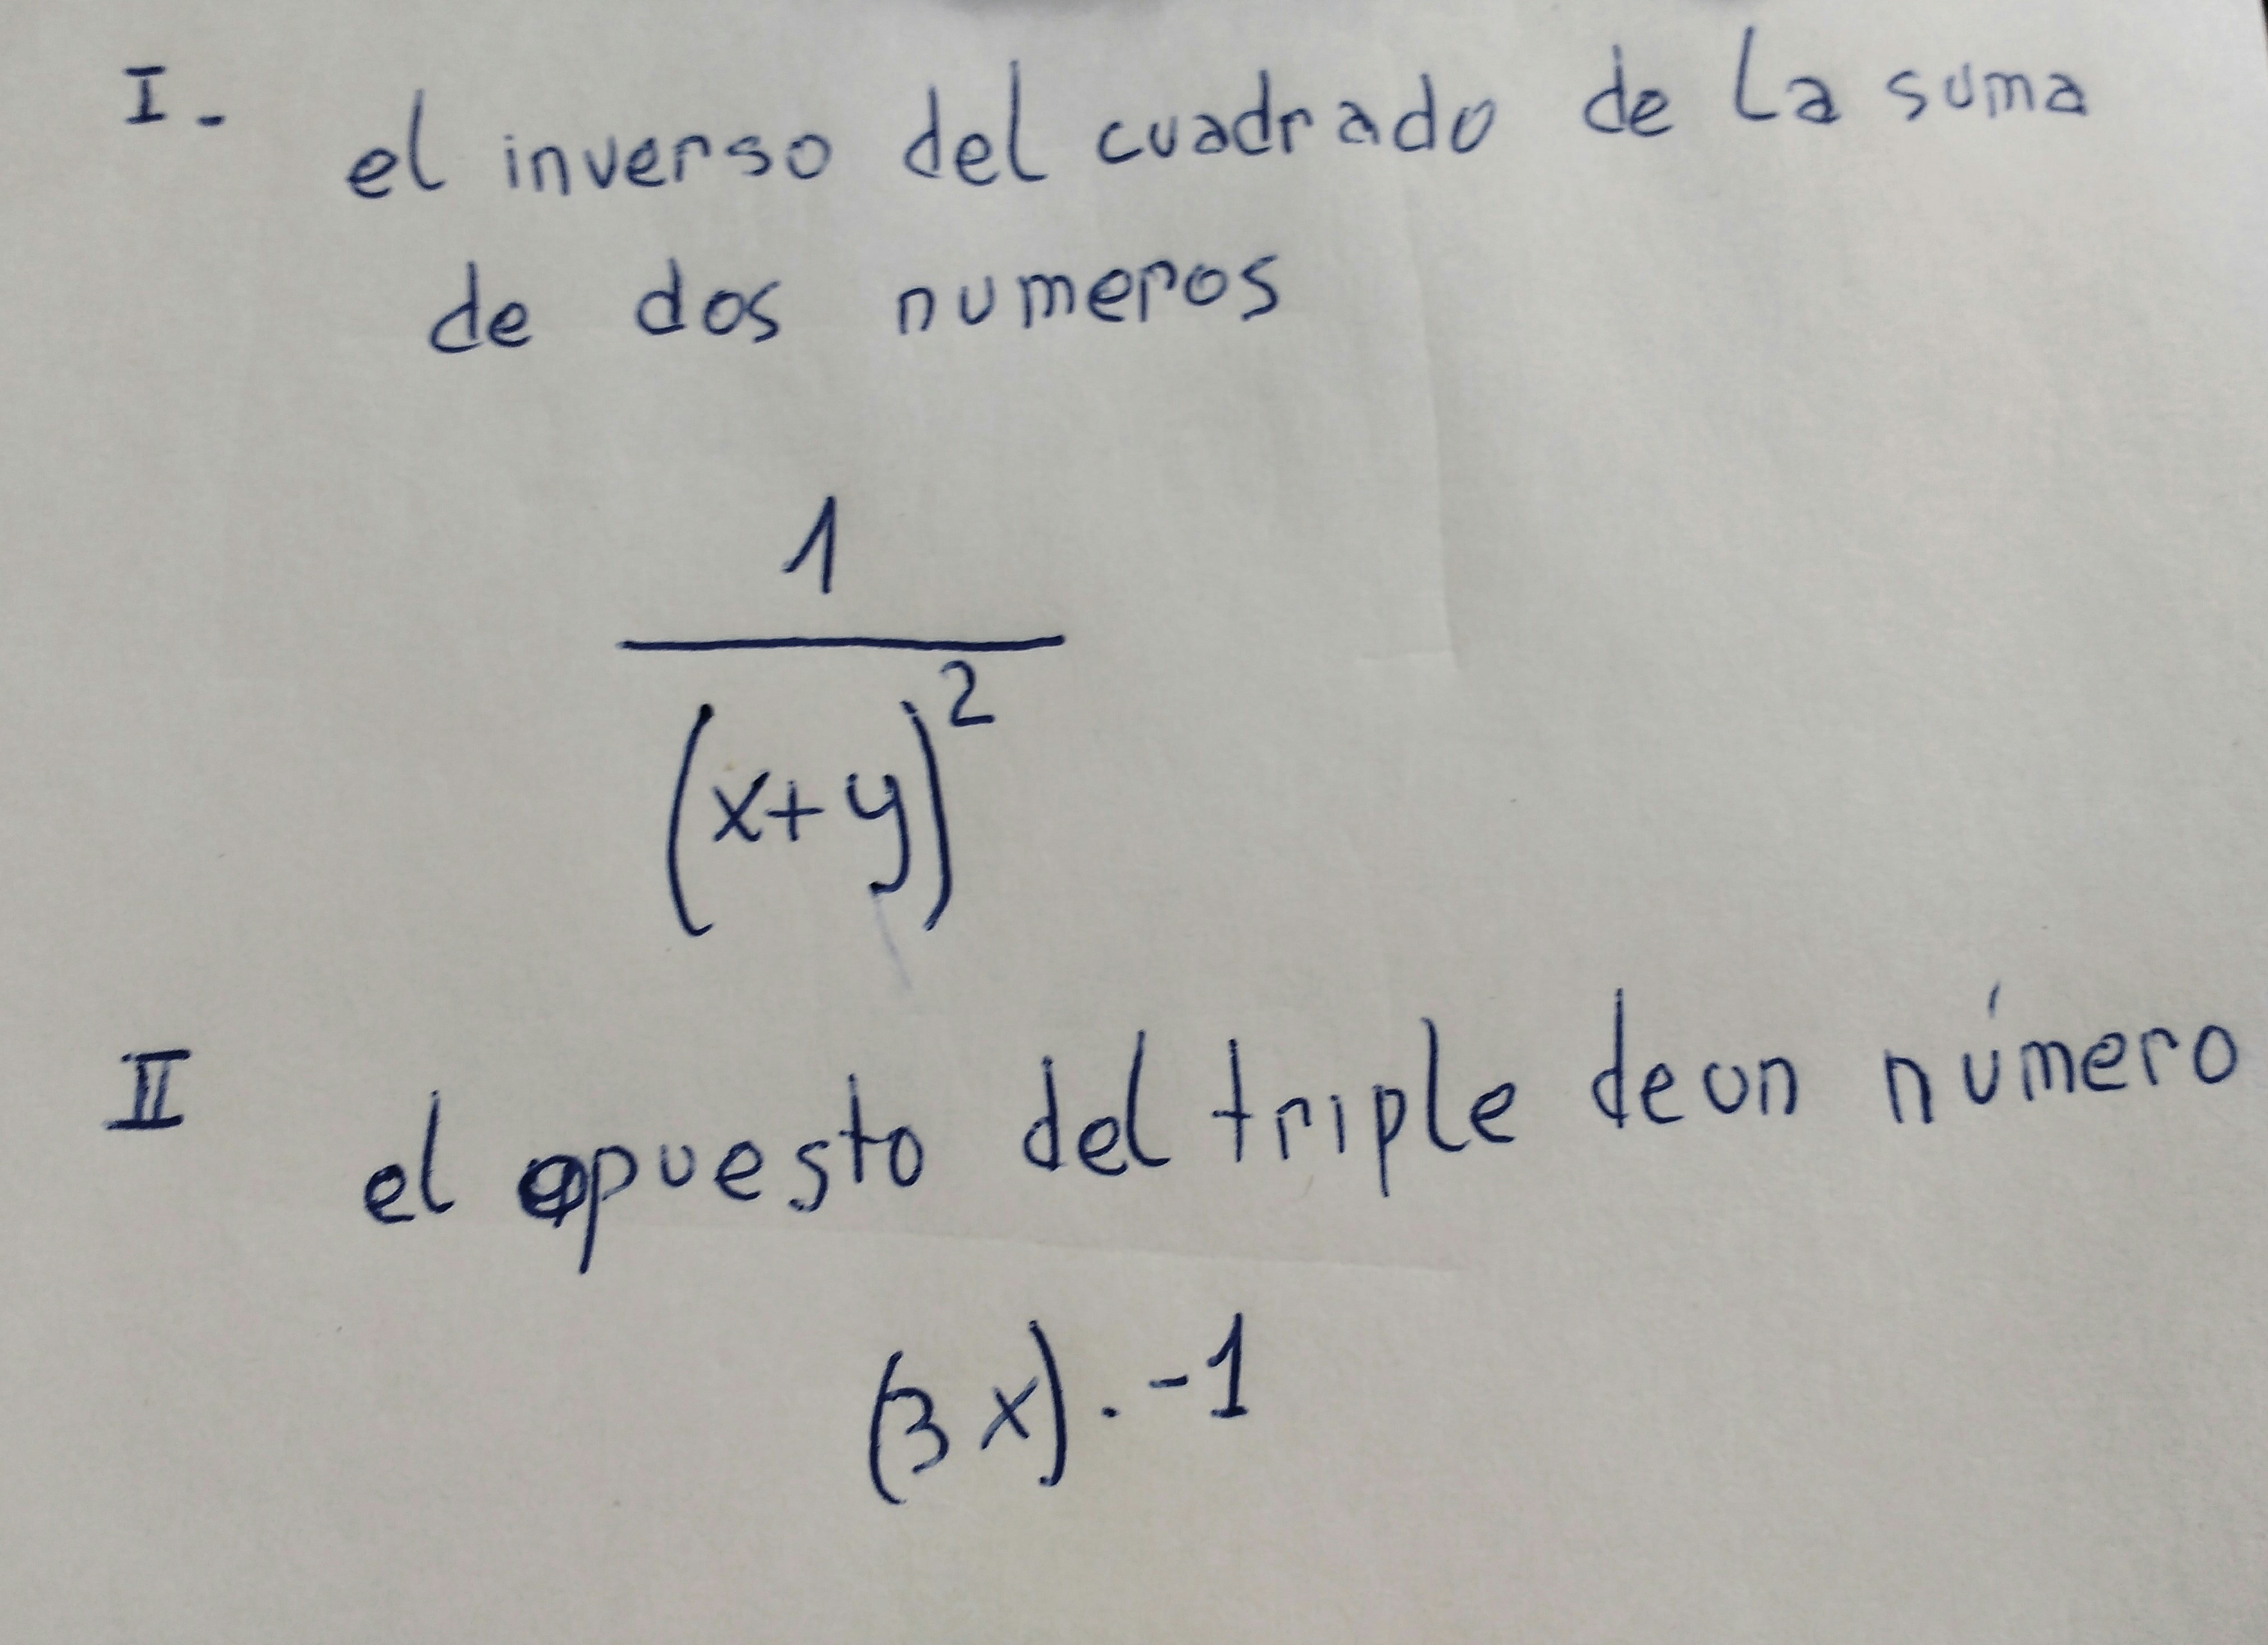 I- el inverso del cuadrado de la suma
de dos numeros
1
(x+y)²
II el opuesto del triple de un número
(3x).-1